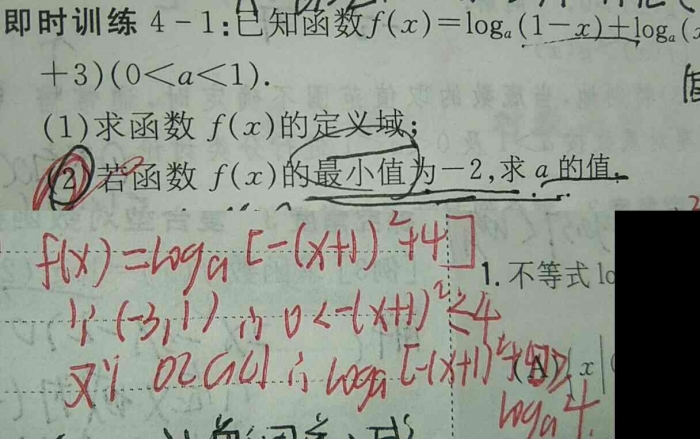 即时训练 4-1:已知函数f(x)=logₐ(1-x)+logₐ(x
+3)(0<a<1).
(1)求函数 f(x)的定义域;
(2)若函数 f(x)的最小值为-2,求 a 的值.
f(x)=logₐ[-(x+1)²+4]
∵(-3,1) ∴ 0<-(x+1)²≤4
又∵ 0<a<1 ∴ logₐ[-(x+1)²+4]≥
logₐ4.
1. 不等式 lo
(A){x|